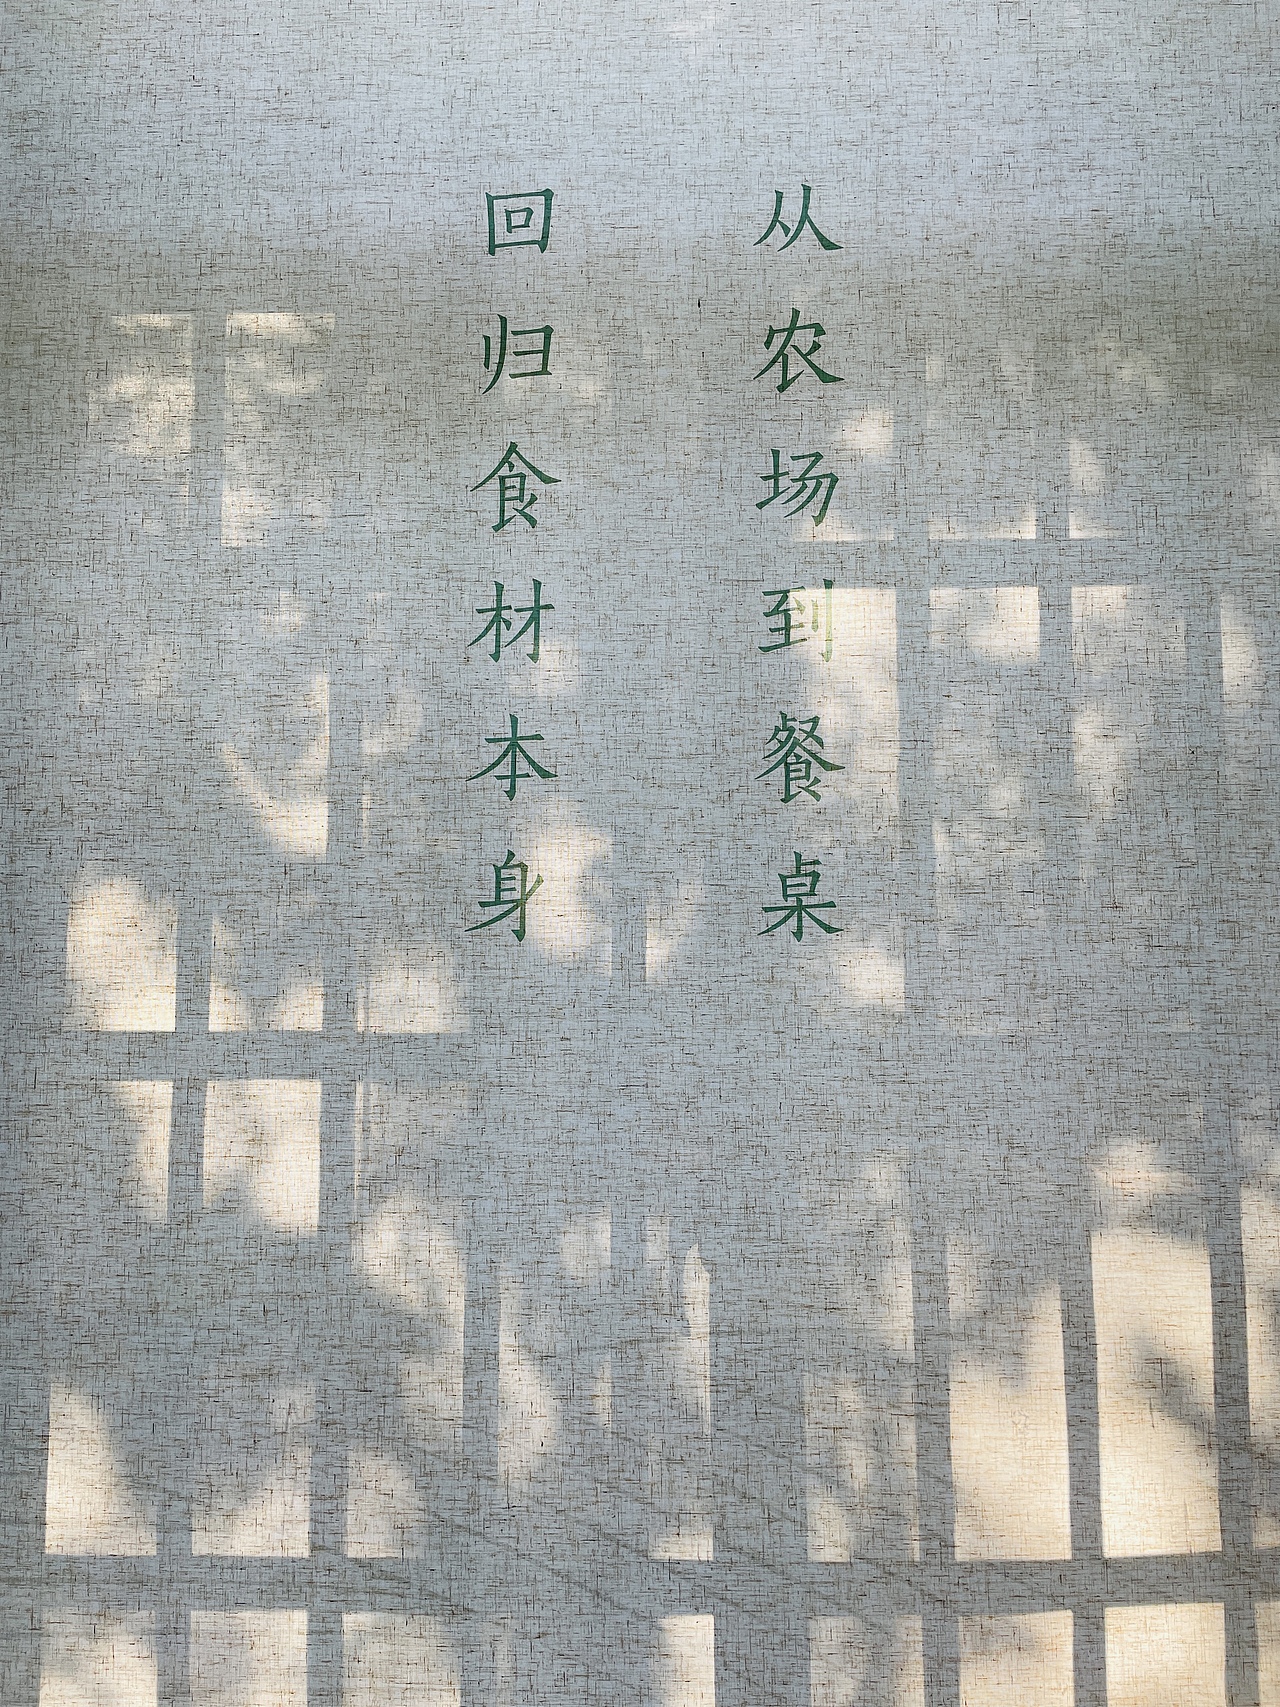 从农场到餐桌
回归食材本身